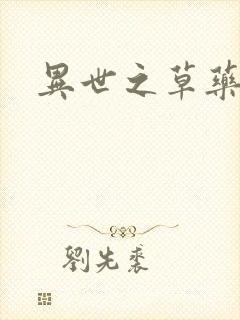 異世之草藥
劉先裘